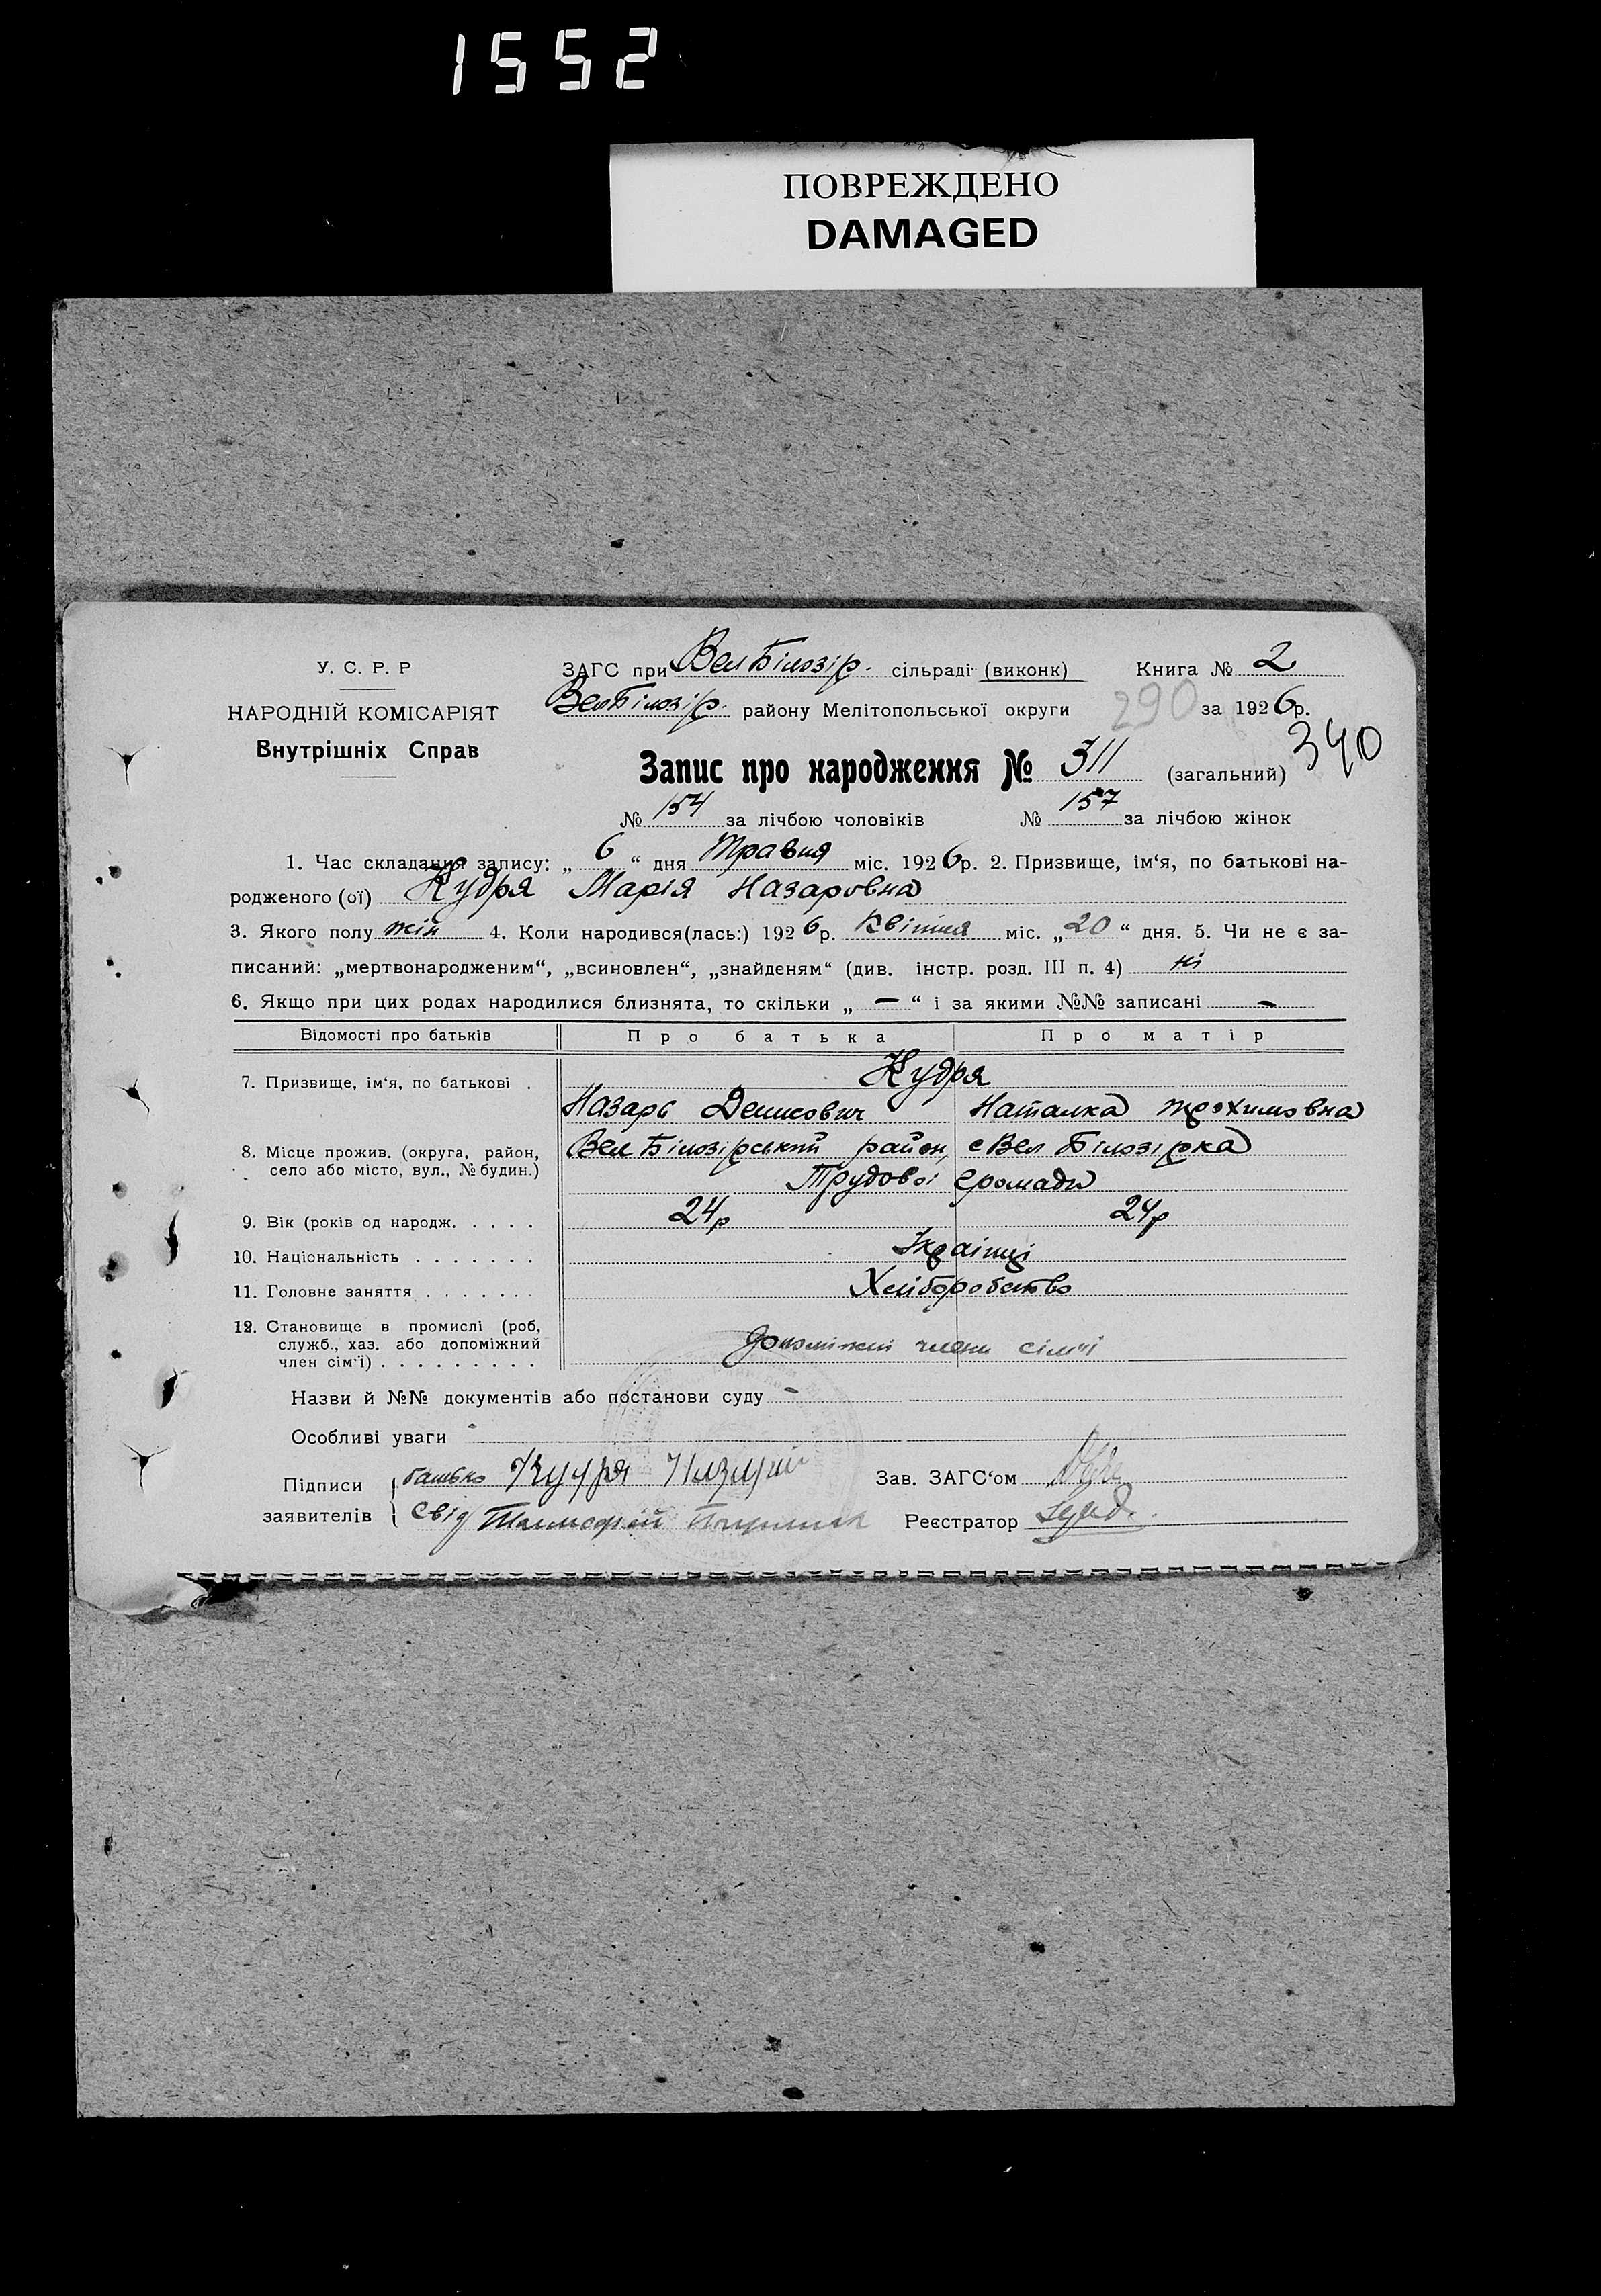 1552
ПОВРЕЖДЕНО
DAMAGED
У. С. Р. Р
НАРОДНІЙ КОМІСАРІЯТ
Внутрішніх Справ
ЗАГС при Вел Білозір. сільраді (виконк) Книга № 2
Вел Білозір. району Мелітопольської округи 290 за 1926р.
340
Запис про народження № 311 (загальний)
№ 154 за лічбою чоловіків № 157 за лічбою жінок
1. Час складання запису: „ 6 “ дня Травня міс. 1926р. 2. Призвище, ім‘я, по батькові на-
родженого (ої) Кудря Марія Назаровна
3. Якого полу жін 4. Коли народився(лась:) 1926р. Квітня міс. „20“ дня. 5. Чи не є за-
писаний: „мертвонародженим“, „всиновлен“, „знайденям“ (див. інстр. розд. III п. 4) ні
6. Якщо при цих родах народилися близнята, то скільки „ — “ і за якими №№ записані —
Відомості про батьків Про батька Про матір
7. Призвище, ім‘я, по батькові . Кудря
Назарь Денисович Наталка Трохимовна
8. Місце прожив. (округа, район, село або місто, вул., № будин.) Вел Білозірський район, с Вел Білозірка
Трудової громади
9. Вік (років од народж. . . . . 24р 24р
10. Національність . . . . . . . Українці
11. Головне заняття . . . . . . . Хліборобство
12. Становище в промислі (роб,
служб., хаз. або допоміжний
член сім‘ї) . . . . . . . . . допоміжні члени сім'ї
Назви й №№ документів або постанови суду -
Особливі уваги -
Підписи батько Кудря Зав. ЗАГС‘ом
заявителів { Свід Реєстратор